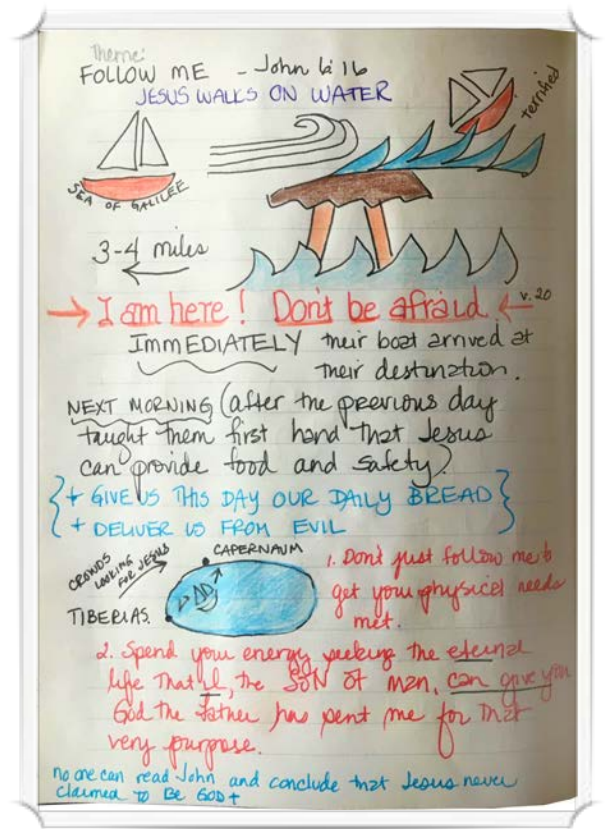 Theme:
FOLLOW ME - John 6:16
JESUS WALKS ON WATER
terrified
SEA OF GALILEE
3-4 miles
→ I am here! Don't be afraid. ← v.20
IMMEDIATELY their boat arrived at
their destination.
NEXT MORNING (after the previous day
taught them first hand that Jesus
can provide food and safety)
{+ GIVE US THIS DAY OUR DAILY BREAD}
+ DELIVER US FROM EVIL
CROWDS
LOOKING
FOR JESUS
CAPERNAUM
TIBERIAS
1. Don't just follow me to
get your physical needs
met.
2. Spend your energy seeking the eternal
life that I, the SON of man, can give you
God the Father has sent me for that
very purpose.
no one can read John and conclude that Jesus never
claimed to Be GOD +